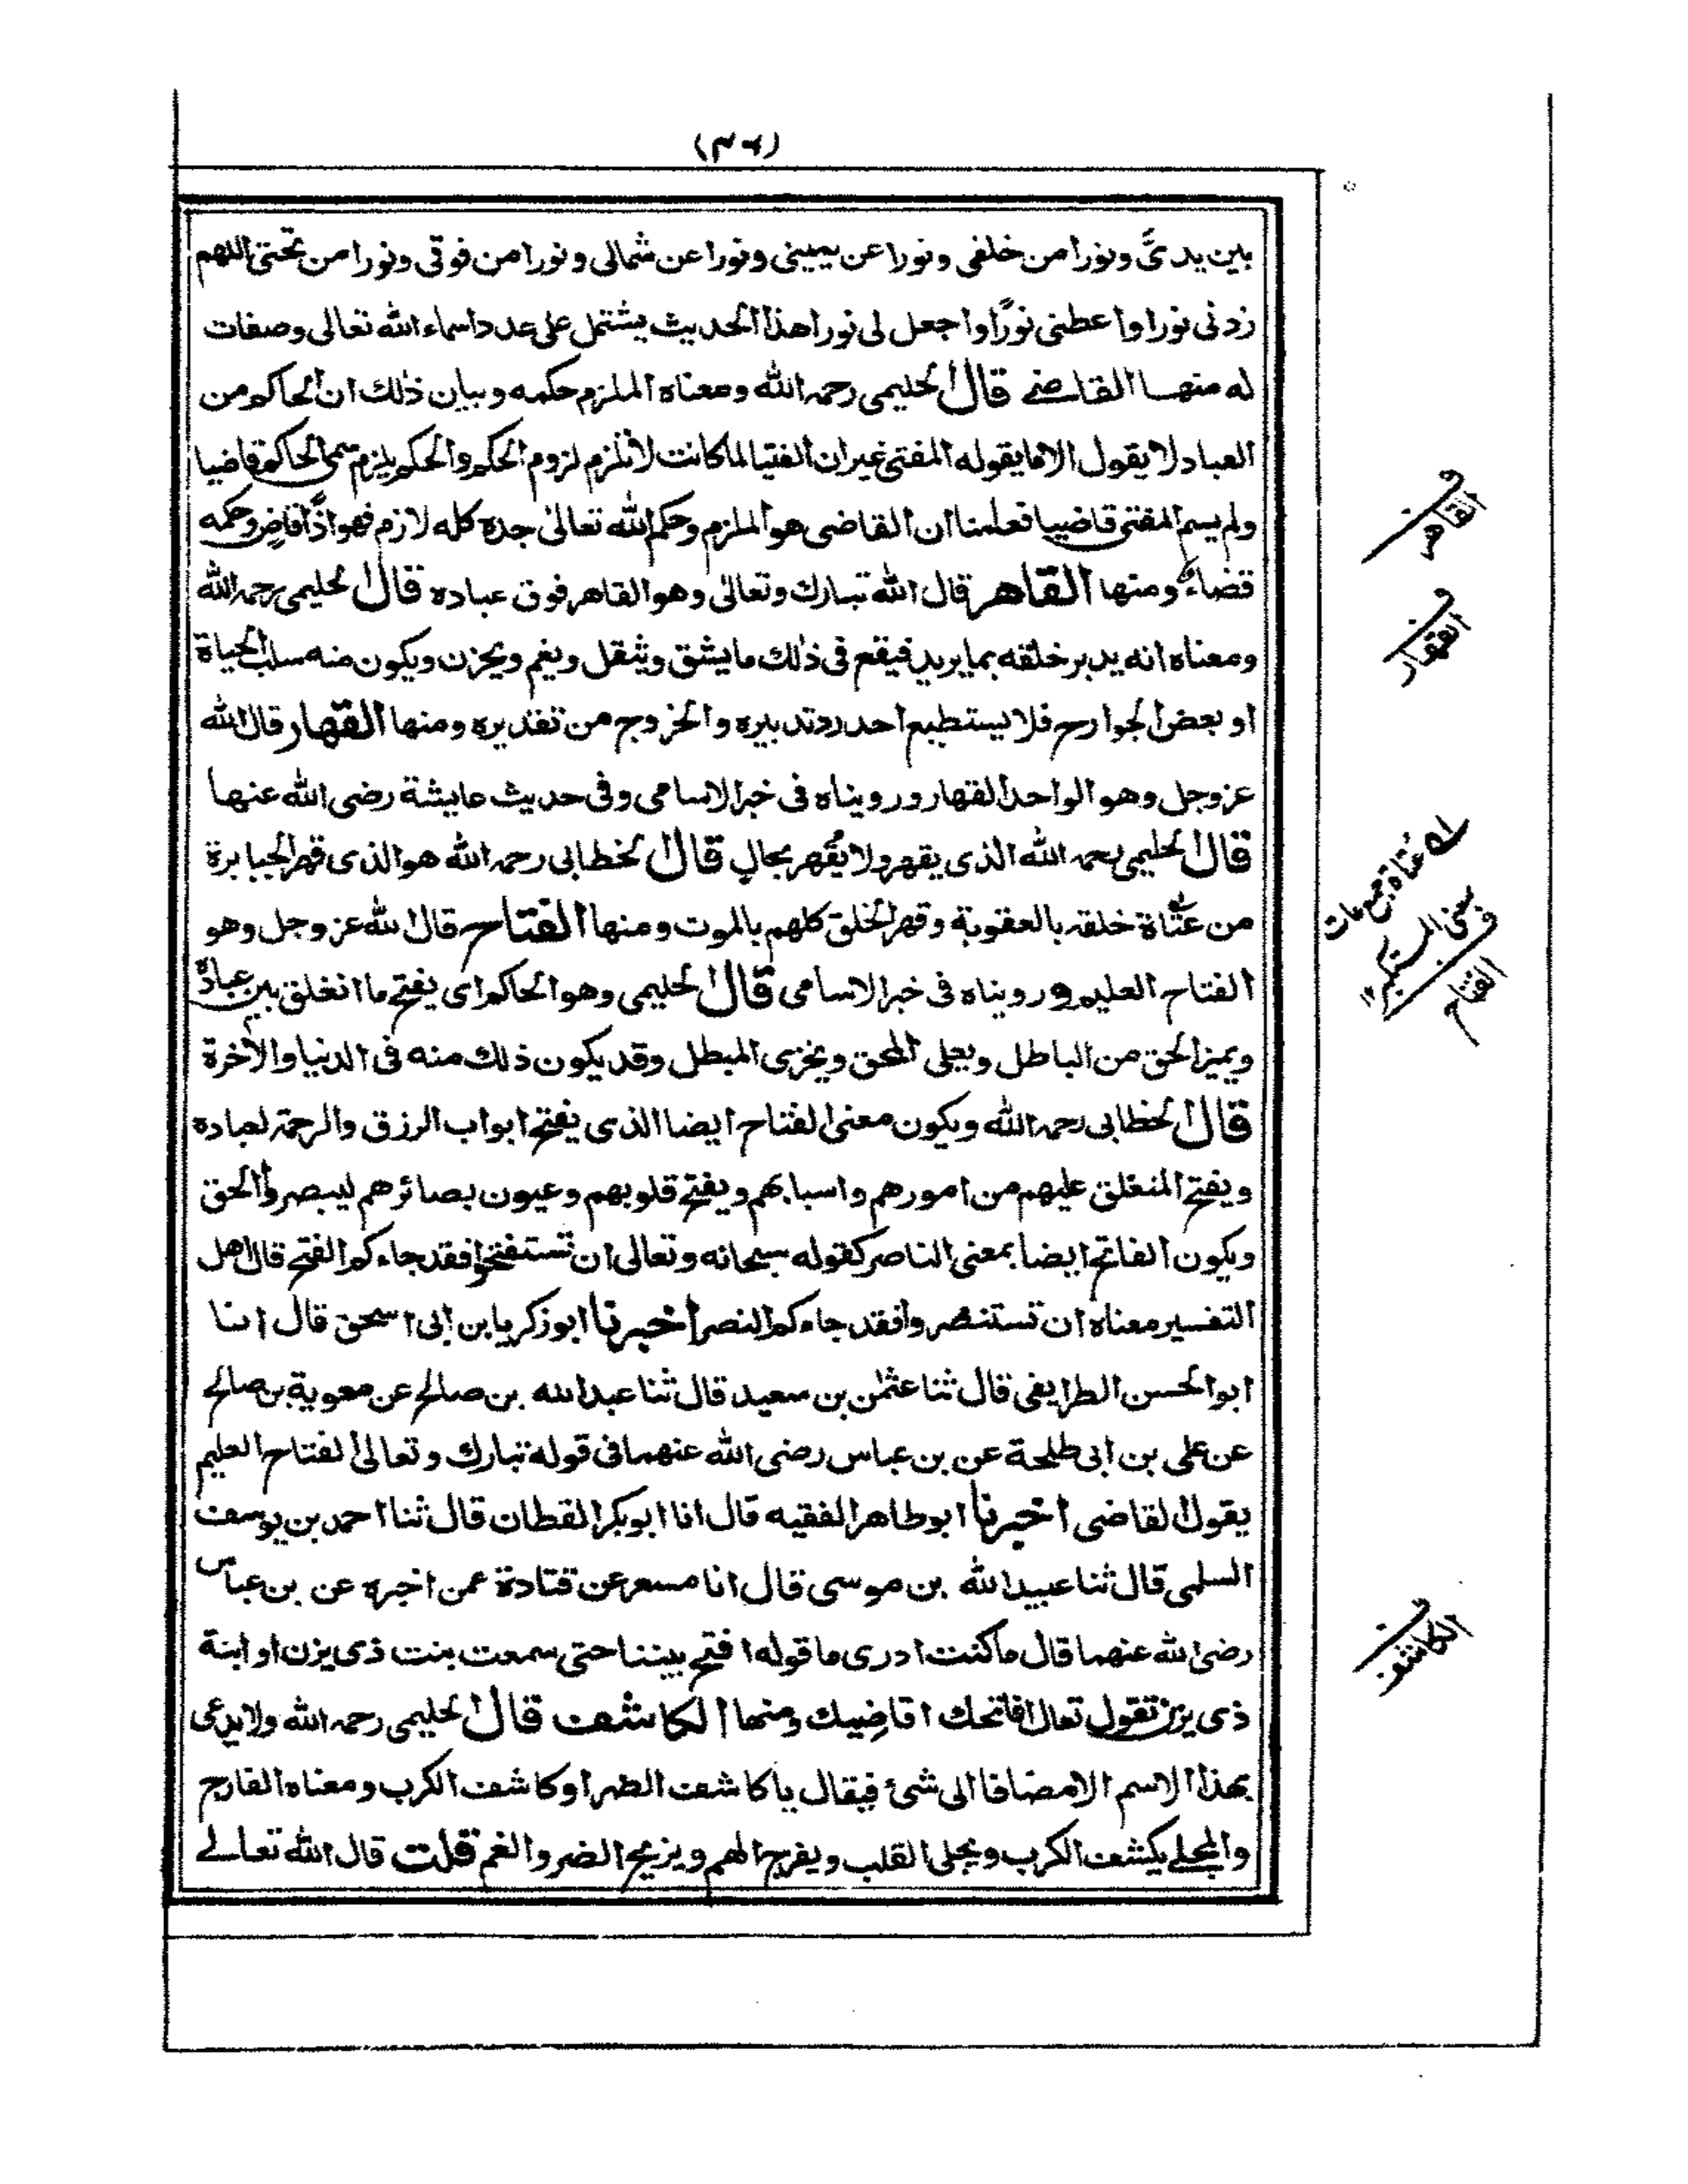 (٤٦)
بين يديَّ ونورا من خلفي ونورا عن يميني ونورا عن شمالي ونورا من فوقي ونورا من تحتي اللهم
زدني نورا واعطني نورًا واجعل لي نورا هذا الحديث يشتمل على عدد اسماء الله تعالى وصفات
له منها القاضي قال الحليمي رحمه الله ومعناه الملزم حكمه وبيان ذلك ان الحاكم من
العباد لا يقول الا ما يقوله المفتي غير ان الفتيا لما كانت لا تلزم لزوم الحكم والحكم يلزم سمي الحاكم قاضيا
ولم يسم المفتي قاضيا فعلمنا ان القاضي هو الملزم وحكم الله تعالى جده كله لازم فهو اذًا قاضٍ وحكمه
قضاء ومنها القاهر قال الله تبارك وتعالى وهو القاهر فوق عباده قال الحليمي رحمه الله
ومعناه انه يدبر خلقه بما يريد فيقع في ذلك ما يشق ويثقل ويغم ويحزن ويكون منه سلب الحياة
او بعض الجوارح فلا يستطيع احد رد تدبيره والخروج من تقديره ومنها القهار قال الله
عزوجل وهو الواحد القهار ورويناه في خبر الاسامي وفي حديث عايشة رضي الله عنها
قال الحليمي رحمه الله الذي يقهر ولا يُقهر بحالٍ قال الخطابي رحمه الله هو الذي قهر الجبابرة
من عُتاة خلقه بالعقوبة وقهر الخلق كلهم بالموت ومنها الفتاح قال الله عزوجل وهو
الفتاح العليم ورويناه في خبر الاسامي قال الحليمي وهو الحاكم اي يفتح ما انغلق بين عباده
ويميز الحق من الباطل ويعلي المحق ويخزي المبطل وقد يكون ذلك منه في الدنيا والآخرة
قال الخطابي رحمه الله ويكون معنى الفتاح ايضا الذي يفتح ابواب الرزق والرحمة لعباده
ويفتح المنغلق عليهم من امورهم واسبابهم ويفتح قلوبهم وعيون بصائرهم ليبصروا الحق
ويكون الفاتح ايضا بمعنى الناصر كقوله سبحانه وتعالى ان تستفتحوا فقد جاءكم الفتح قال اهل
التفسير معناه ان تستنصروا فقد جاءكم النصر اخبرنا ابو زكريا بن ابي اسحق قال انا
ابو الحسن الطرايفي قال ثنا عثمٰن بن سعيد قال ثنا عبد الله بن صالح عن معوية بن صالح
عن علي بن ابي طلحة عن بن عباس رضي الله عنهما في قوله تبارك وتعالى الفتاح العليم
يقول القاضي اخبرنا ابو طاهر الفقيه قال انا ابو بكر القطان قال ثنا احمد بن يوسف
السلمي قال ثنا عبيد الله بن موسى قال انا مسعر عن قتادة عمن اخبره عن بن عباس
رضي الله عنهما قال ما كنت ادري ما قوله افتح بيننا حتى سمعت بنت ذي يزن او ابنة
ذي يزن تقول تعال افاتحك اقاضيك ومنها الكاشف قال الحليمي رحمه الله ولا يدعى
بهذا الاسم الا مضافا الى شئ فيقال يا كاشف الضر او كاشف الكرب ومعناه الفارج
والمجلي يكشف الكرب ويجلي القلب ويفرج الهم ويزيح الضر والغم قلت قال الله تعالى
القاهر
القهار
عُتاة جمع عات
بمعنى المستكبر ١٢
الفتاح
الكاشف